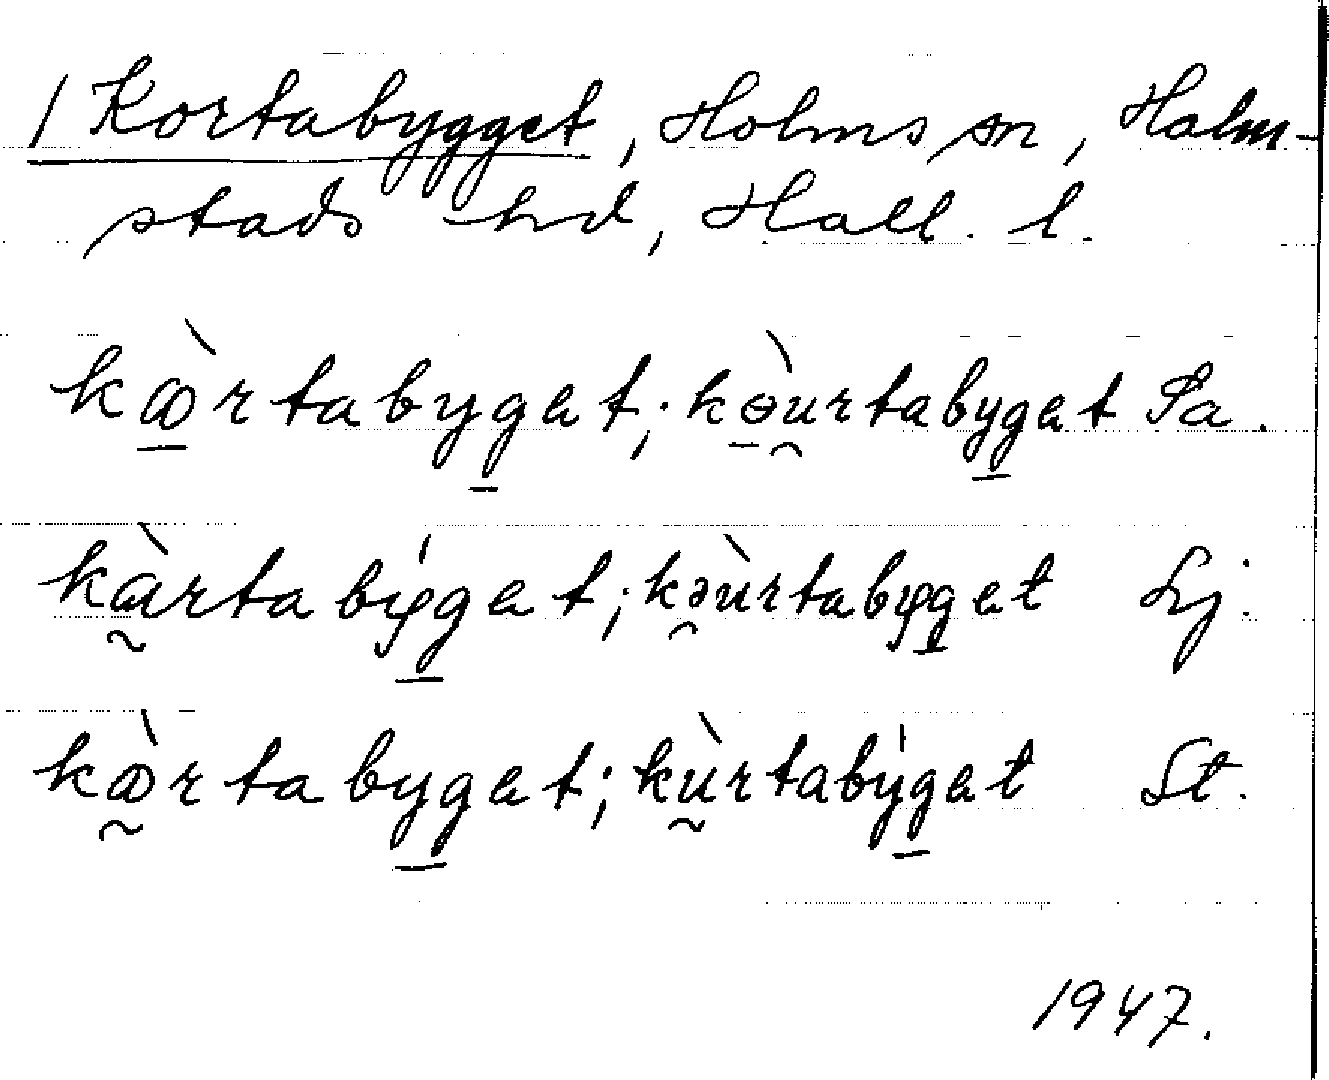 / Kortabygget, Holms sn, Halm-
stads hd, Hall. l.
kàrtabyget; kəùrtabyget Sa.
kàrtabýget; kəùrtabyget Lj.
kàrtabyget; kùrtabýget St.
1947.